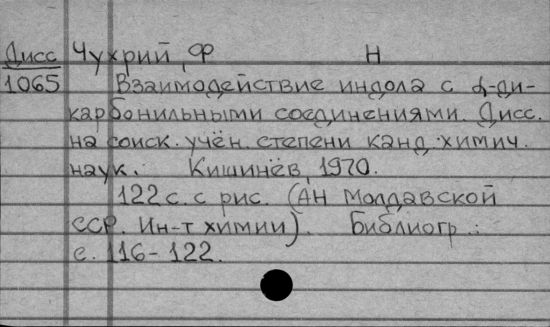 Дисс Чухрий, Ф Н
1065 Взаимодействие индола с α-ди-
карбонильными соединениями. Дисс.
на соиск. учён. степени канд. химич.
наук. Кишинёв, 1970.
122 с. с рис. (АН Молдавской
ССР. Ин-т химии). Библиогр.:
с. 116-122.